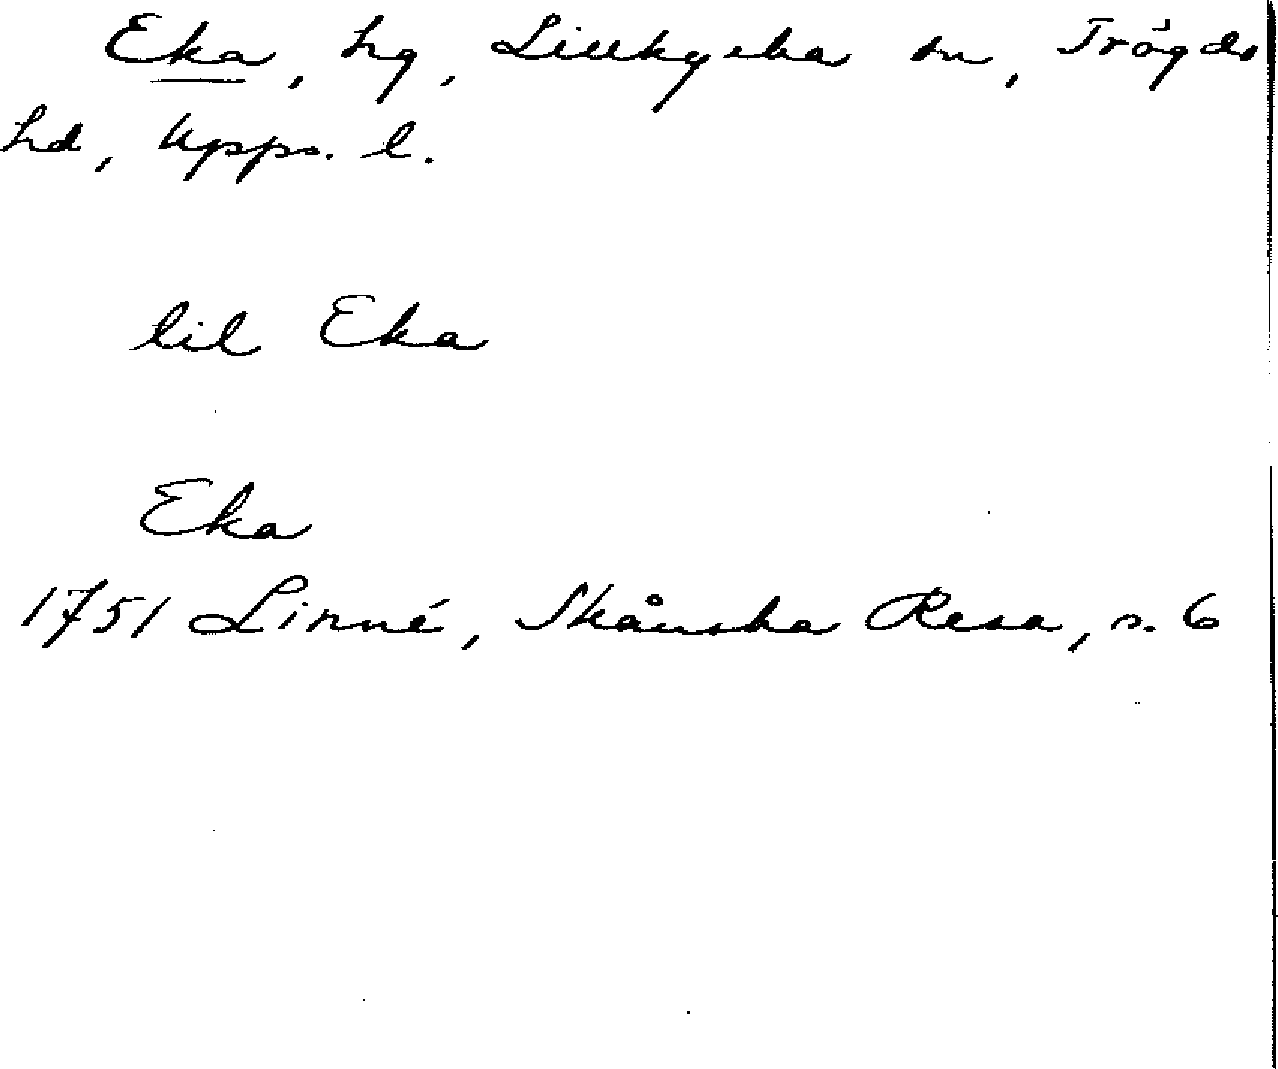 Eka, hg, Lillkyrka sn, Trögds
hd, Upps. l.
lil Eka
Eka
1751 Linné, Skånska Resa, s. 6